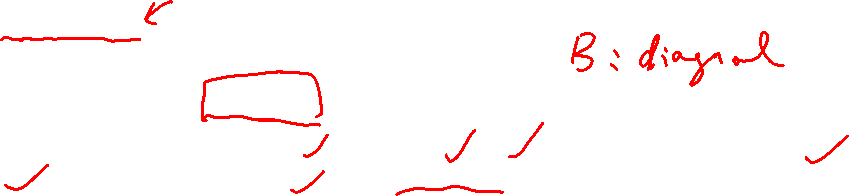 B: diagonal